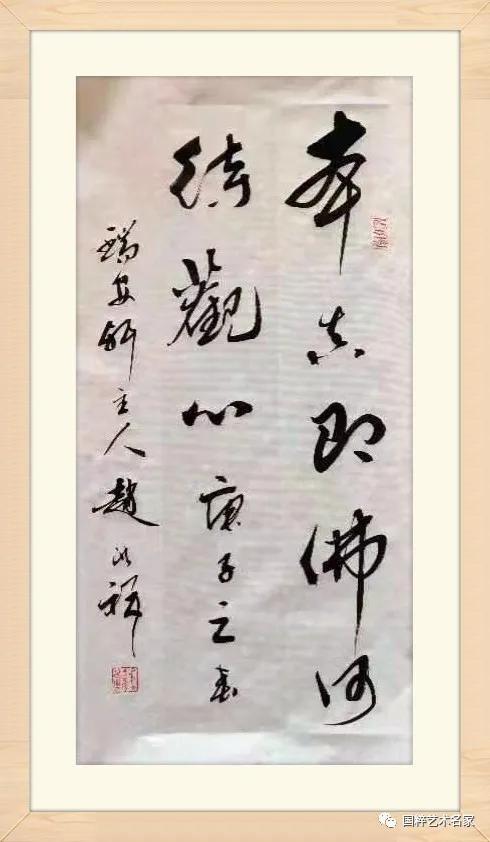 本真即佛何
待觀心 庚子之春
瑞安軒主人趙祥
国粹艺术名家